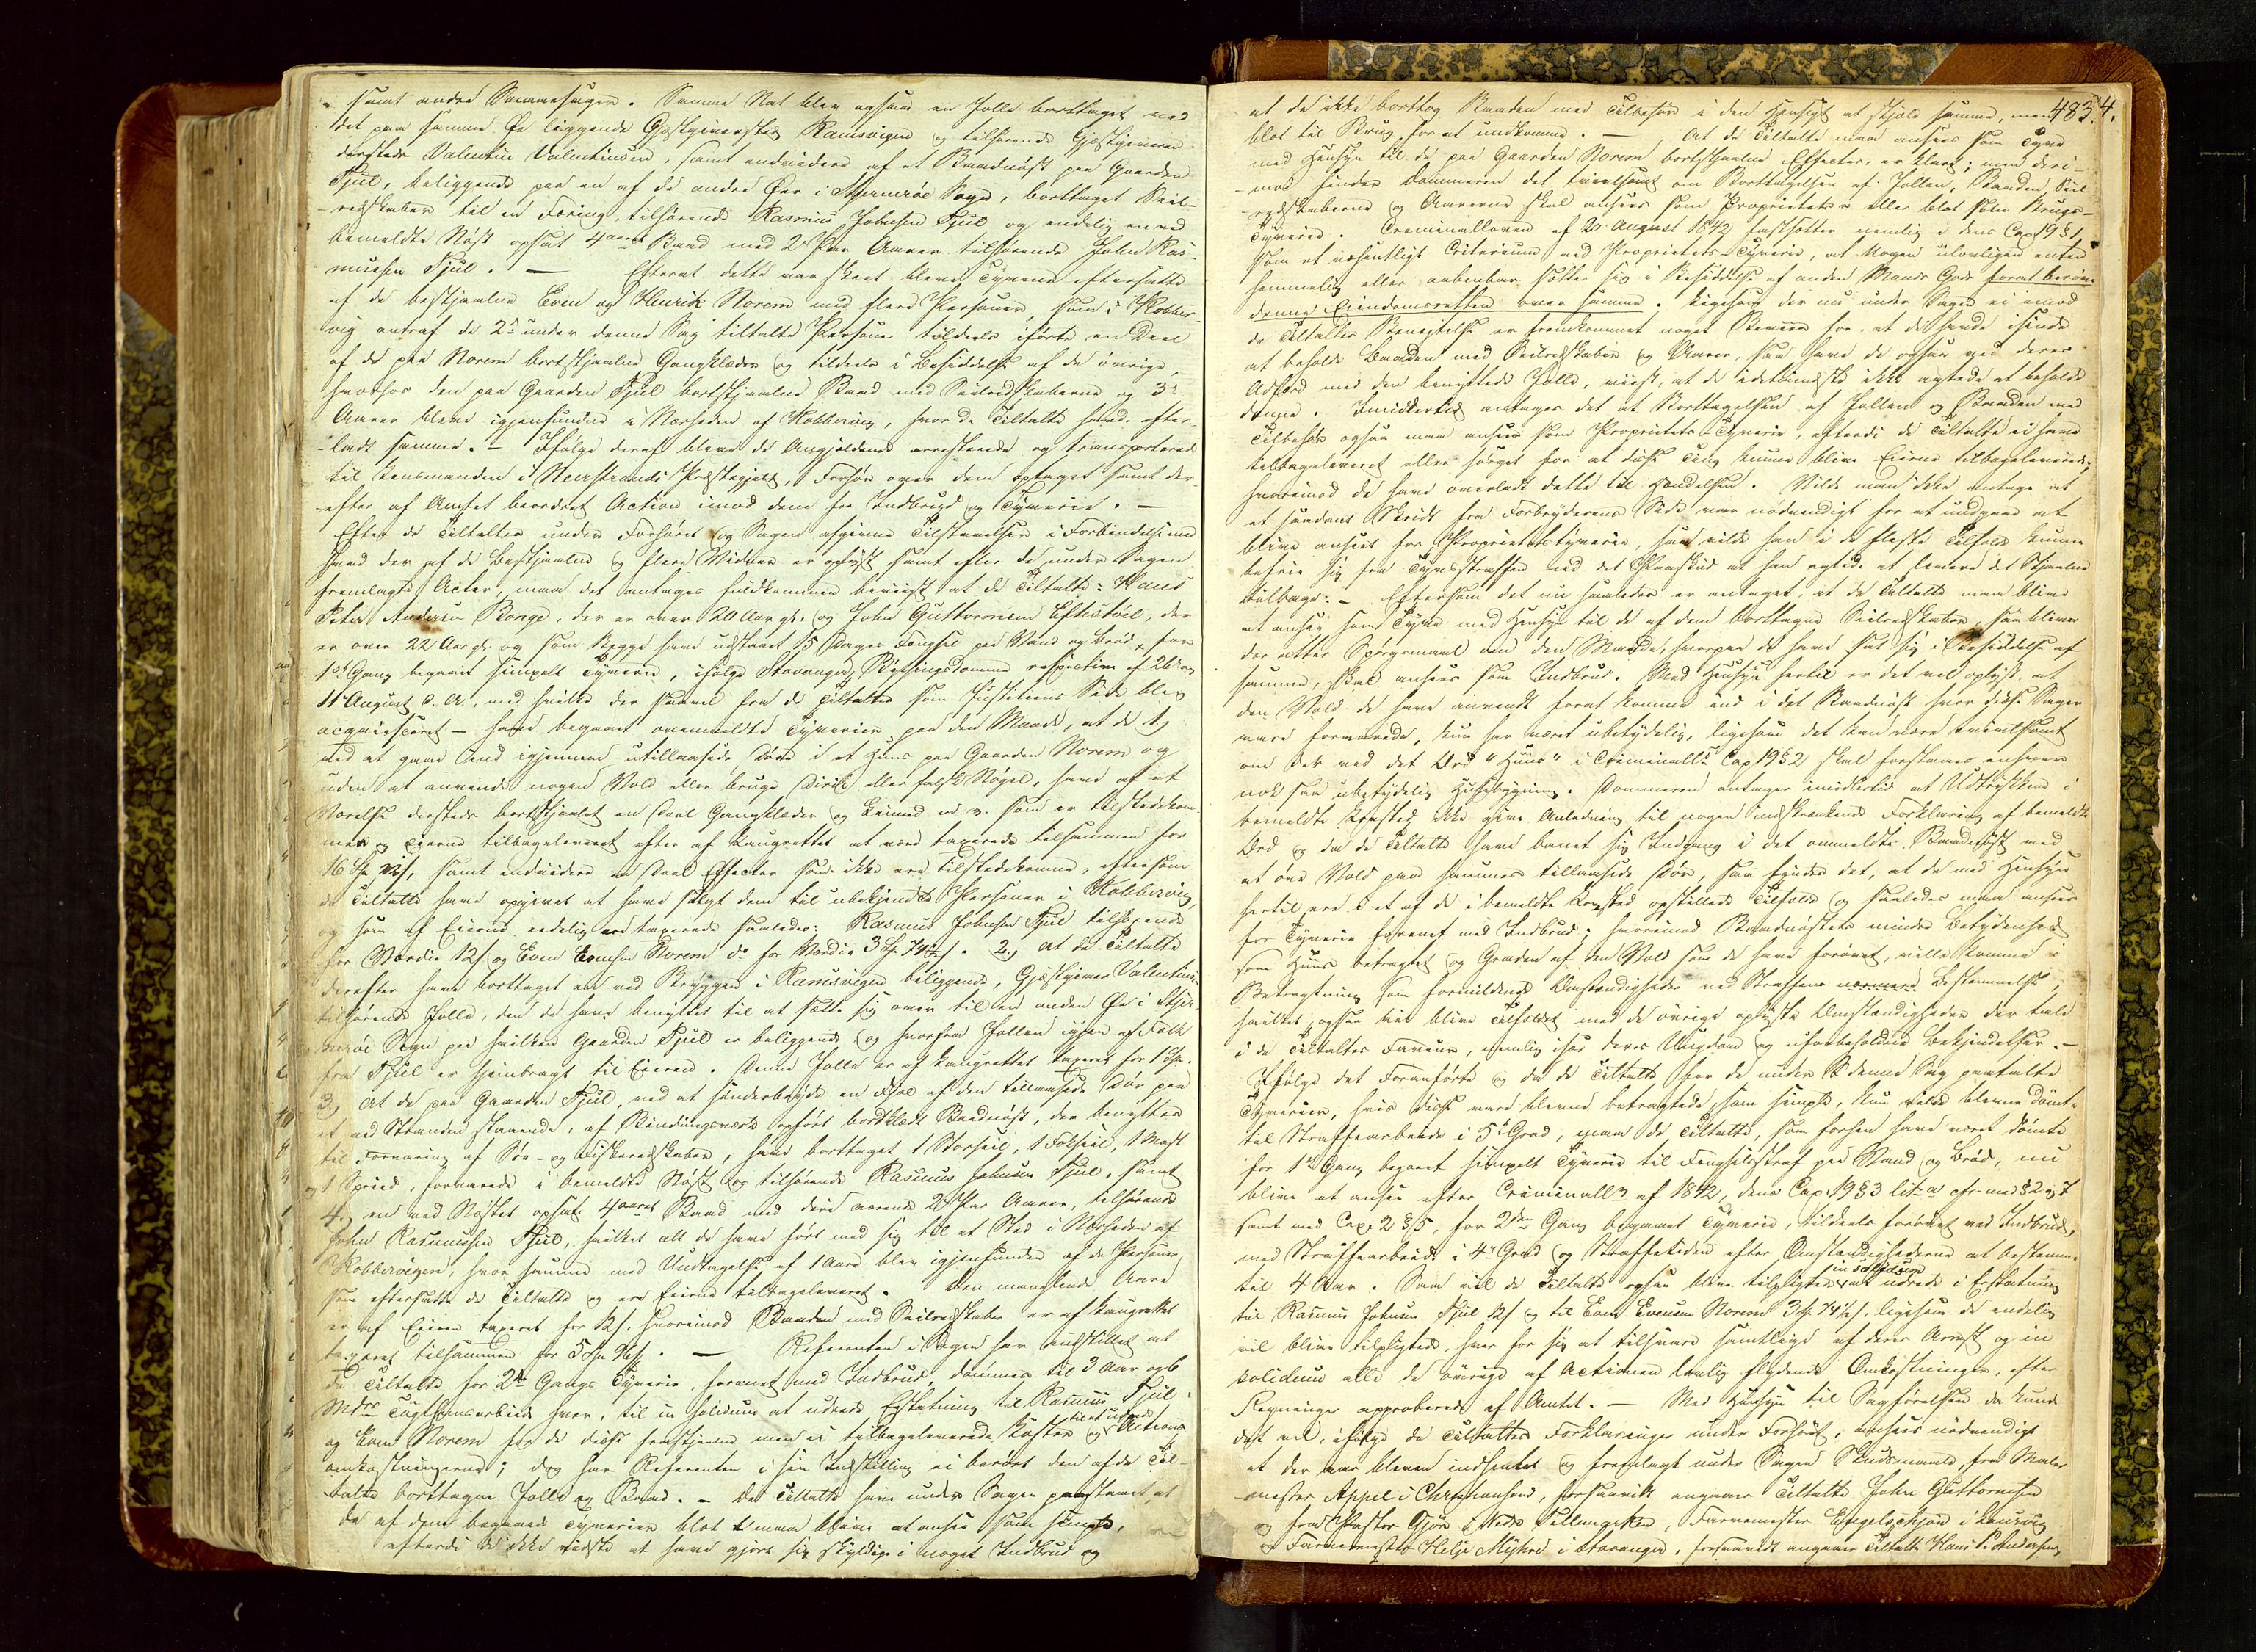 samt andre Smaaesager. Samme Nat blev ogsaa en Jolle borttaget ved
det paa samme Øe liggende Gjæstgiversted Ramsvigen og tilhørende Gjæstgiveren
dersteds Valentin Valentinsen, samt endvidere af et Baadnøst paa Gaarden
Tjul, beliggende paa en af de andre Øer i Stjernerøe Sogn, borttaget Seil-
redskaber til en Færing, tilhørende Rasmus Johnsen Tjul og endelig en ved
bemeldte Nøst opsat 4aaret Baad med 2 Par Aarer tilhørende John Ras-
mussen Tjul. — Efterat dette var skeet bleve Tyvene eftersatte
af de bestjaalne Even og Henrik Norem med flere Personer, som i Kobber-
vig antraf de 2de under denne Sag tiltalte Personer tildeels iførte en Deel
af de paa Norem bortstjaalne Gangklæder og tildeels i Besiddelse af de øvrige,
hvorhos den paa Gaarden Tjul bortstjaalne Baad med Seilredskaberne og 3de
Aarer bleve igjenfundne i Nærheden af Kobbervig, hvor de Tiltalte havde efter-
ladt samme. — Ifølge deraf bleve de Angjældende arresterede og transporterede
til Lensmanden i Neerstrands Præstegjeld, Forhør over dem optaget samt der-
efter af Amtet beordret Action imod dem for Indbrud og Tyverie. —
Efter de Tiltaltes under Forhøret og Sagen afgivne Tilstaaelser i Forbindelse med
hvad der af de Bestjaalne og flere Vidner er oplyst samt efter de under Sagen
fremlagte Acter, maa det antages fuldkommen beviist at de Tiltalte: Hans
Peter Andersen Bonge, der er over 20 Aar gl. og John Guttormsen Eftestøel, der
er over 22 Aar gl. og som begge have udstaaet 15 Dages Fængsel paa Vand og Brød for
1ste Gang begaaet simpelt Tyverie, ifølge Stavanger Bythingsdomme respective af 26 og
11te August d. A., med hvilke der saavel fra de Tiltaltes som Justitiens Side blev
acqviesceret — have begaaet ovenmeldte Tyverier paa den Maade, at de 1,
ved at gaae ind igjennem utillaasede Døre i et Huus paa Gaarden Norem og
uden at anvende nogen Vold eller bruge Dirik eller falsk Nøgel, have af et
Værelse dersteds bortstjaalet en Deel Gangklæder og Linned m. v. som er tilstedekom-
men og Eierne tilbageleveret efter af Laugrettet at være taxerede tilsammen for
16 Spd , samt endvidere en Deel Effecter som ikke ere tilstedekomne, eftersom
de Tiltalte have opgivet at have solgt dem til ubekjendte Personer i Kobbervig,
og som af Eierne eedelig ere taxerede saaledes: Rasmus Johnsen Tjul tilhørende
for Værdie 12 s og Even Evensen Norem do for Værdie 3 Spd 74½ s. 2, at de Tiltalte
derefter have borttaget en ved Bryggen i Ramsvigen beliggende, Gjæstgiver Valentinsen
tilhørende Jolle, den de have benyttet til at sætte sig over til en anden Øe i Stjer-
nerøe Sogn paa hvilken Gaarden Tjul er beliggende og hvorfra Jollen igjen af Folk
fra Tjul er hjembragt til Eieren. Denne Jolle er af Laugrettet taxeret for 1 Spd.
3, At de paa Gaarden Tjul, ved at sønderbryde en Fjæl af den tillaasede Dør paa
et ved Stranden staaende, af Bindingsværk opført bordklædt Baadnøst, der benyttes
til Forvaring af Søe- og Fiskeredskaber, have borttaget 1 Storseil, 1 Fokseil, 1 Mast
og 1 Spriid, forvarede i bemeldte Nøst og tilhørende Rasmus Johnsen Tjul, samt
4, en ved Nøstet opsat 4aaret Baad med deri værende 2 Par Aarer, tilhørende
John Rasmussen Tjul, hvilket alt de have ført med sig til et Sted i Nærheden af
Kobbervigen, hvor samme med Undtagelse af 1 Aare blev igjenfunden af de Personer
som eftersatte de Tiltalte og ere Eierne tilbageleveret. Den manglende Aare
er af Eieren taxeret for 12 s, hvorimod Baaden med Seilredskaber er af Laugrettet
taxeret tilsammen for 5 Spd . — Referenten i Sagen har indstillet at
de Tiltalte for 2den Gangs Tyverie, forenet med Indbrud, dømmes til 3 Aar og 6
Mdrs Tugthuusarbeide hver, til in solidum at udrede Erstatning til Rasmus Tjul
og Even Norem for de disse frastjaalne men ei tilbageleverede Koster og til at udrede Actions
omkostningerne; dog har Referenten i sin Indstilling ei berørt den af de Til-
talte borttagne Jolle og Baad. — De Tiltalte have under Sagen paastaaet, at
de af dem begaaede Tyverier blot maa blive at ansee som simple,
efterdi de ikke vidste at have gjort sig skyldige i noget Indbrud og
483. 4.
at de ikke borttog Baaden med Tilbehør i den Hensigt at stjæle samme, men
blot til Brug for at undkomme. — At de Tiltalte maa ansees som Tyve
med Hensyn til de paa Gaarden Norem bortstjaalne Effecter, er klart; men deri-
mod finder Dommeren det tvivlsomt om Borttagelsen af Jollen, Baaden, Seil-
redskaberne og Aarerne skal ansees som Proprietets- eller blot som Brugs-
Tyverie. Criminalloven af 20 August 1842 fastsætter nemlig i dens Cap 19 § 1,
som et væsentligt Criterium ved Proprietets-Tyverie, at Nogen ulovligen enten
hemmelig eller aabenbar sætter sig i Besiddelse af anden Mands Gods for at berøve
denne Eiendomsretten over samme. Ligesom der nu under Sagen ei imod
de Tiltaltes Benegtelse er fremkommet noget Beviis for, at de havde isinde
at beholde Baaden med Seilredskaber og Aarer, saa have de ogsaa ved deres
Adfærd med den benyttede Jolle, viist, at de idetmindste ikke agtede at beholde
denne. Imidlertid antages det at Borttagelsen af Jollen og Baaden med
Tilbehør ogsaa maa ansees som Proprietets-Tyverie, efterdi de Tiltalte ei have
tilbageleveret eller sørget for at disse Ting kunne blive Eierne tilbageleverede;
hvorimod de have overladt dette til Hændelsen. Vilde man ikke antage at
et saadant Skridt fra Forbryderens Side var nødvendigt for at undgaae at
blive anseet for Proprietetstyverie, saa vilde han i de fleste Tilfælde kunne
befrie sig fra Tyvsstraffen ved det Paaskud at han agtede at levere det Stjaalne
tilbage. — Eftersom det nu saaledes er antaget, at de Tiltalte maa blive
at ansee som Tyve med Hensyn til de af dem borttagne Seilredskaber, saa bliver
der atter Spørgsmaal om den Maade, hvorpaa de have sat sig i Besiddelse af
samme, skal ansees som Indbrud. Med Hensyn hertil er det vel oplyst, at
den Vold de have anvendt forat komme ind i det Baadnøst hvor disse Sager
vare forvarede, kun har været ubetydelig, ligesom det kan være tvivlsomt
om der ved det Ord "Huus" i Criminall. Cap 19 § 2 skal forstaaes enhver
nok saa ubetydelig Huusbygning. Dommeren antager imidlertid at Udtrykkene i
bemeldte Lovsted ikke give Anledning til nogen indskrænkende Forklaring af bemeldte
Ord og da de Tiltalte have banet sig Indgang i det ommeldte Baadnøst ved
at øve Vold paa sammes tillaasede Dør, saa fyndes det, at de med Hensyn
hertil ere i et af de i bemeldte Lovsted opstillede Tilfælde og saaledes maa ansees
for Tyverie forenet med Indbrud; hvorimod Baadnøstets mindre Betydenhed
som Huus betragtet og Graden af den Vold som de have forøvet, ville komme i
Betragtning som formildende Omstændigheder ved Straffens nærmere Bestemmelse,
hvilket ogsaa vil blive Tilfældet med de øvrige oplyste Omstændigheder der tale
i de Tiltaltes Faveur, nemlig især deres Ungdom og uforbeholdne Bekjendelser. —
Ifølge det Foranførte og da de Tiltalte for de under denne Sag paatalte
Tyverier, hvis disse vare blevne betragtede, som simple, kun vilde blevne dømte
til Straffearbeide i 5te Grad, maa de Tiltalte, som forhen have været dømte
for 1ste Gang begaaet simpelt Tyverie til Fængselsstraf paa Vand og Brød, nu
blive at ansee efter Criminall. af 1842, dens Cap. 19 § 3 lit. a cfr. med § 2 og 7
samt med Cap. 2 § 5, for 2den Gang begaaet Tyverie, tildeels forøvet ved Indbrud,
med Straffearbeide i 4de Grad og Straffetiden efter Omstændighederne at bestemme
til 4 Aar. Saa vil de Tiltalte ogsaa blive tilpligtede in solidum at udrede i Erstatning
til Rasmus Johnsen Tjul 12 s og til Even Evensen Norem 3 Spd 74½ s, ligesom de endelig
vil blive tilpligtede, hver for sig at tilsvare samtlige af deres Arrest og in
solidum alle de øvrige af Actionen lovlig flydende Omkostninger, efter
Regninger approberede af Amtet. — Med Hensyn til Sagførelsen da kunde
det vel, ifølge de Tiltaltes Forklaringer under Forhøret, ansees nødvendigt
at der var bleven indhentet og fremlagt under Sagen Skudsmaal, fra Maler
mester Appel i Christiansand, forsaavidt angaaer Tiltalte John Guttormsen
og fra Pastor Gjør i Nedre Tellemarken, Farvemester Engelschjøn i Laurvig
og Farvemester Helje Myhre i Stavanger, forsaavidt angaaer Tiltalte Hans P. Andersen,